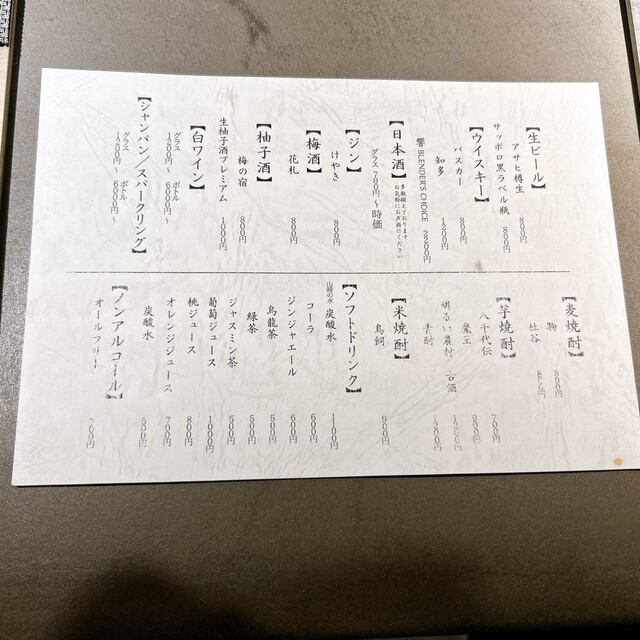 【生ビール】
アサヒ樽生 800円
サッポロ黒ラベル瓶 800円
【ウイスキー】
バスカー 800円
知多 1200円
響 BLENDER'S CHOICE 2800円
【日本酒】 多数揃えております。
お気軽にお声掛けください。
グラス 700円〜時価
【ジン】
けやき 800円
【梅酒】
花札 800円
【柚子酒】
梅の宿 800円
生柚子酒プレミアム 1000円
【白ワイン】
グラス ボトル
1200円〜 6000円〜
【シャンパン/スパークリング】
グラス ボトル
1200円〜 6000円〜
【麦焼酎】
駒 800円
杜谷
【芋焼酎】
八千代伝 700円
魔王
明るい農村 古酒
青酎
【米焼酎】
鳥飼
【ソフトドリンク】
炭酸水
コーラ 600円
ジンジャエール 600円
烏龍茶 500円
緑茶 500円
ジャスミン茶 500円
葡萄ジュース 1000円
桃ジュース 800円
オレンジジュース 700円
炭酸水 500円
【ノンアルコール】
オールフリー 700円